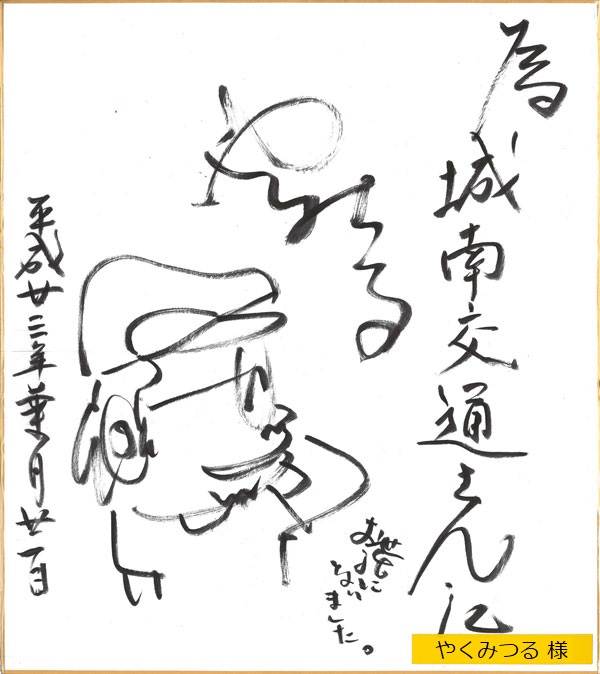 為
城南交通さん江
やくみつる
お世話に
なりました。
平成廿二年葉月廿一日
やくみつる 様